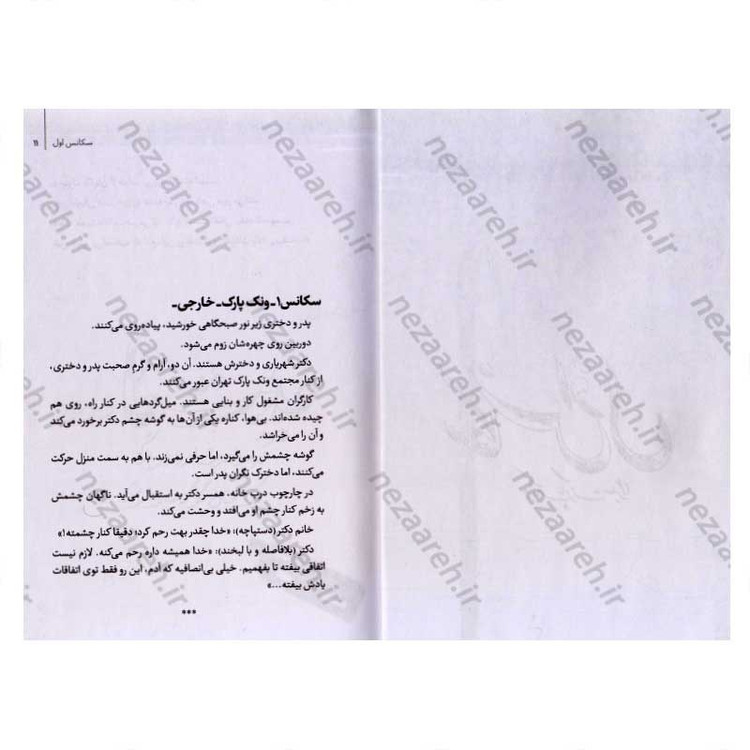 سکانس اول ۱۱
سکانس۱ـ ونک پارک ـ خارجی ـ
پدر و دختری زیر نور صبحگاهی خورشید، پیاده‌روی می‌کنند.
دوربین روی چهره‌شان زوم می‌شود.
دکتر شهریاری و دخترش هستند. آن دو، آرام و گرمِ صحبت پدر و دختری،
از کنار مجتمع ونک پارک تهران عبور می‌کنند.
کارگران مشغول کار و بنایی هستند. میل‌گردهایی در کنار راه، روی هم
چیده شده‌اند. بی‌هوا، کناره یکی از آن‌ها به گوشه چشم دکتر برخورد می‌کند
و آن را می‌خراشد.
گوشه چشمش را می‌گیرد، اما حرفی نمی‌زند. با هم به سمت منزل حرکت
می‌کنند، اما دخترک نگران پدر است.
در چارچوب درب خانه، همسر دکتر به استقبال می‌آید. ناگهان چشمش
به زخم کنار چشم او می‌افتد و وحشت می‌کند.
خانم دکتر (دستپاچه): «خدا چقدر بهت رحم کرد؛ دقیقا کنار چشمته!»
دکتر (بلافاصله و با لبخند): «خدا همیشه داره رحم می‌کنه. لازم نیست
اتفاقی بیفته تا بفهمیم. خیلی بی‌انصافیه که آدم، این رو فقط توی اتفاقات
یادش بیفته...»
***
nezaareh.ir
nezaareh.ir
nezaareh.ir
nezaareh.ir
nezaareh.ir
nezaareh.ir
nezaareh.ir
nezaareh.ir